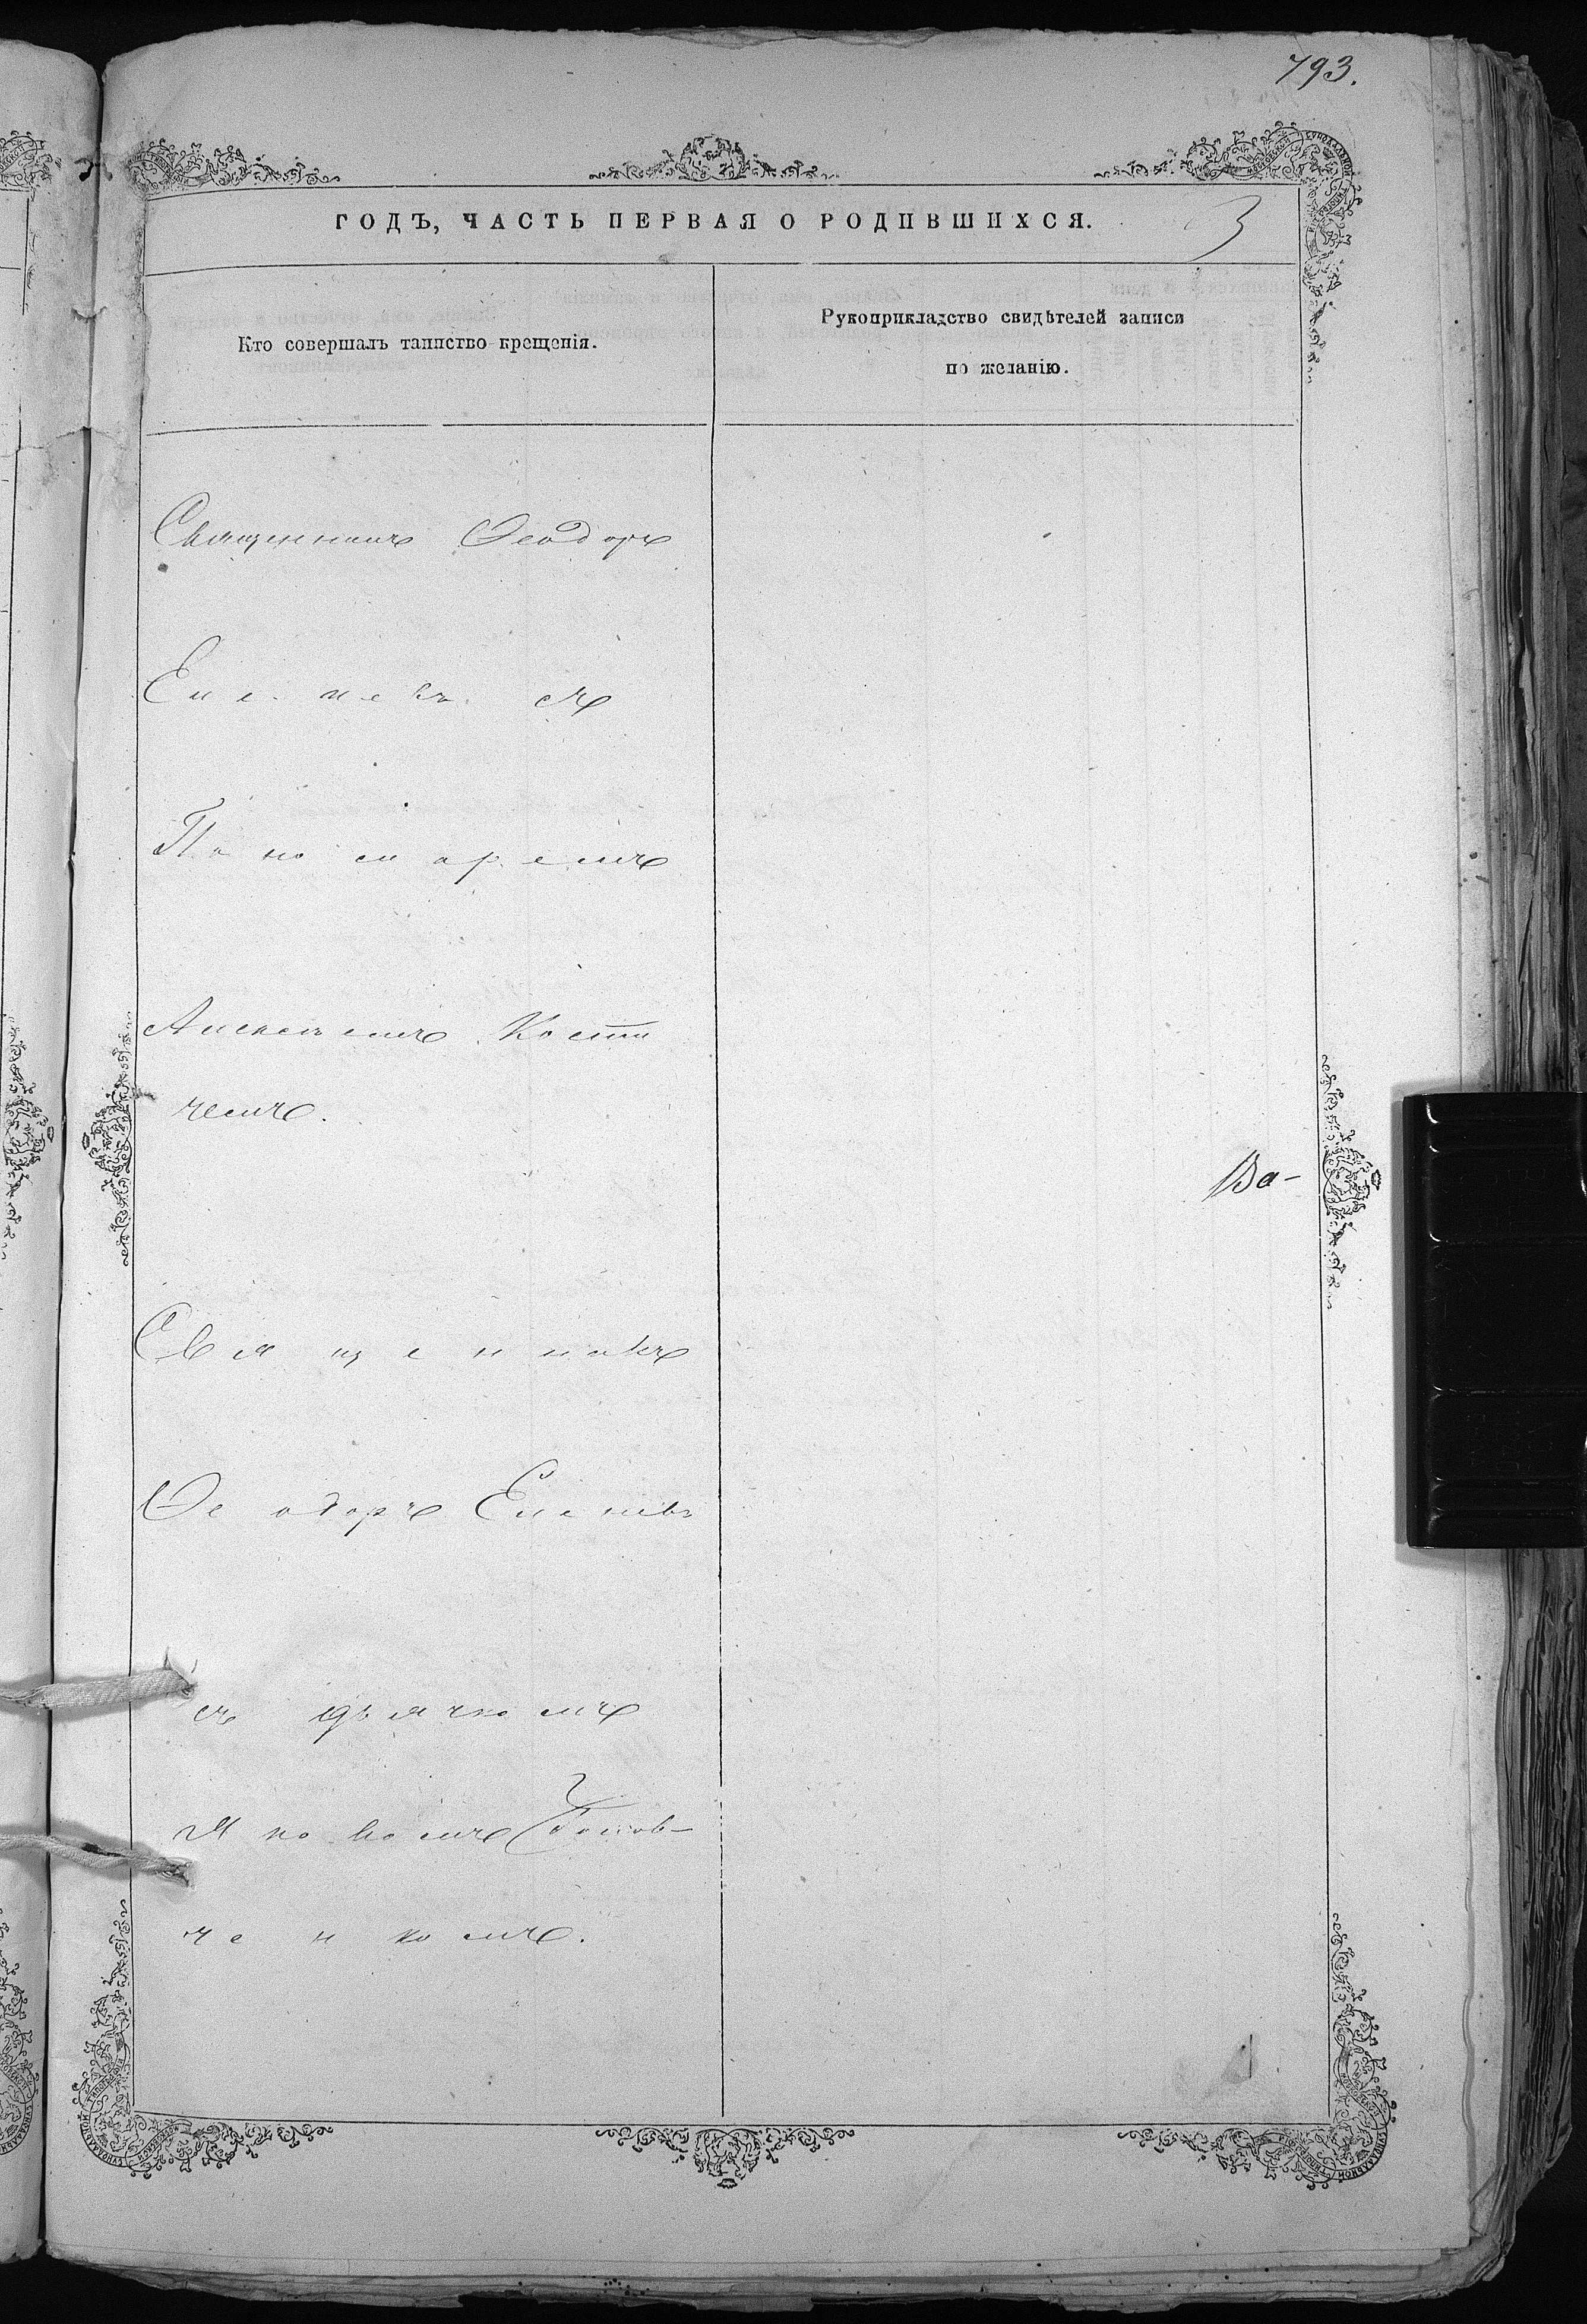 793.
ГОДЪ, ЧАСТЬ ПЕРВАЯ О РОДИВШИХСЯ.
3
Кто совершалъ таинство крещенія.
Рукоприкладство свидѣтелей записи
по желанію.
Священникъ Ѳеодоръ
съ
Пономаремъ
Алексѣемъ Кости
чемъ.
Ва-
Священникъ
Ѳеодоръ
съ дьячкомъ
Яковомъ
ченкомъ.